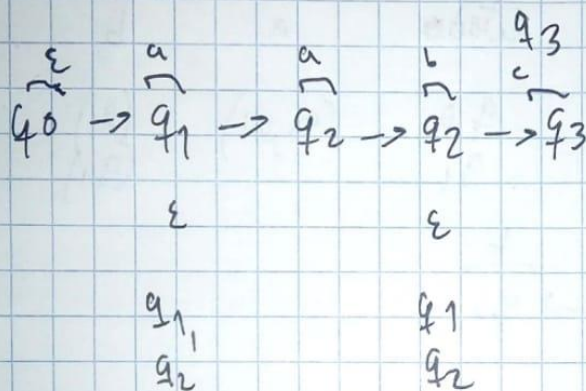 q3
ε a a b c
q0 → q1 → q2 → q2 → q3
ε ε
q1, q1
q2 q2